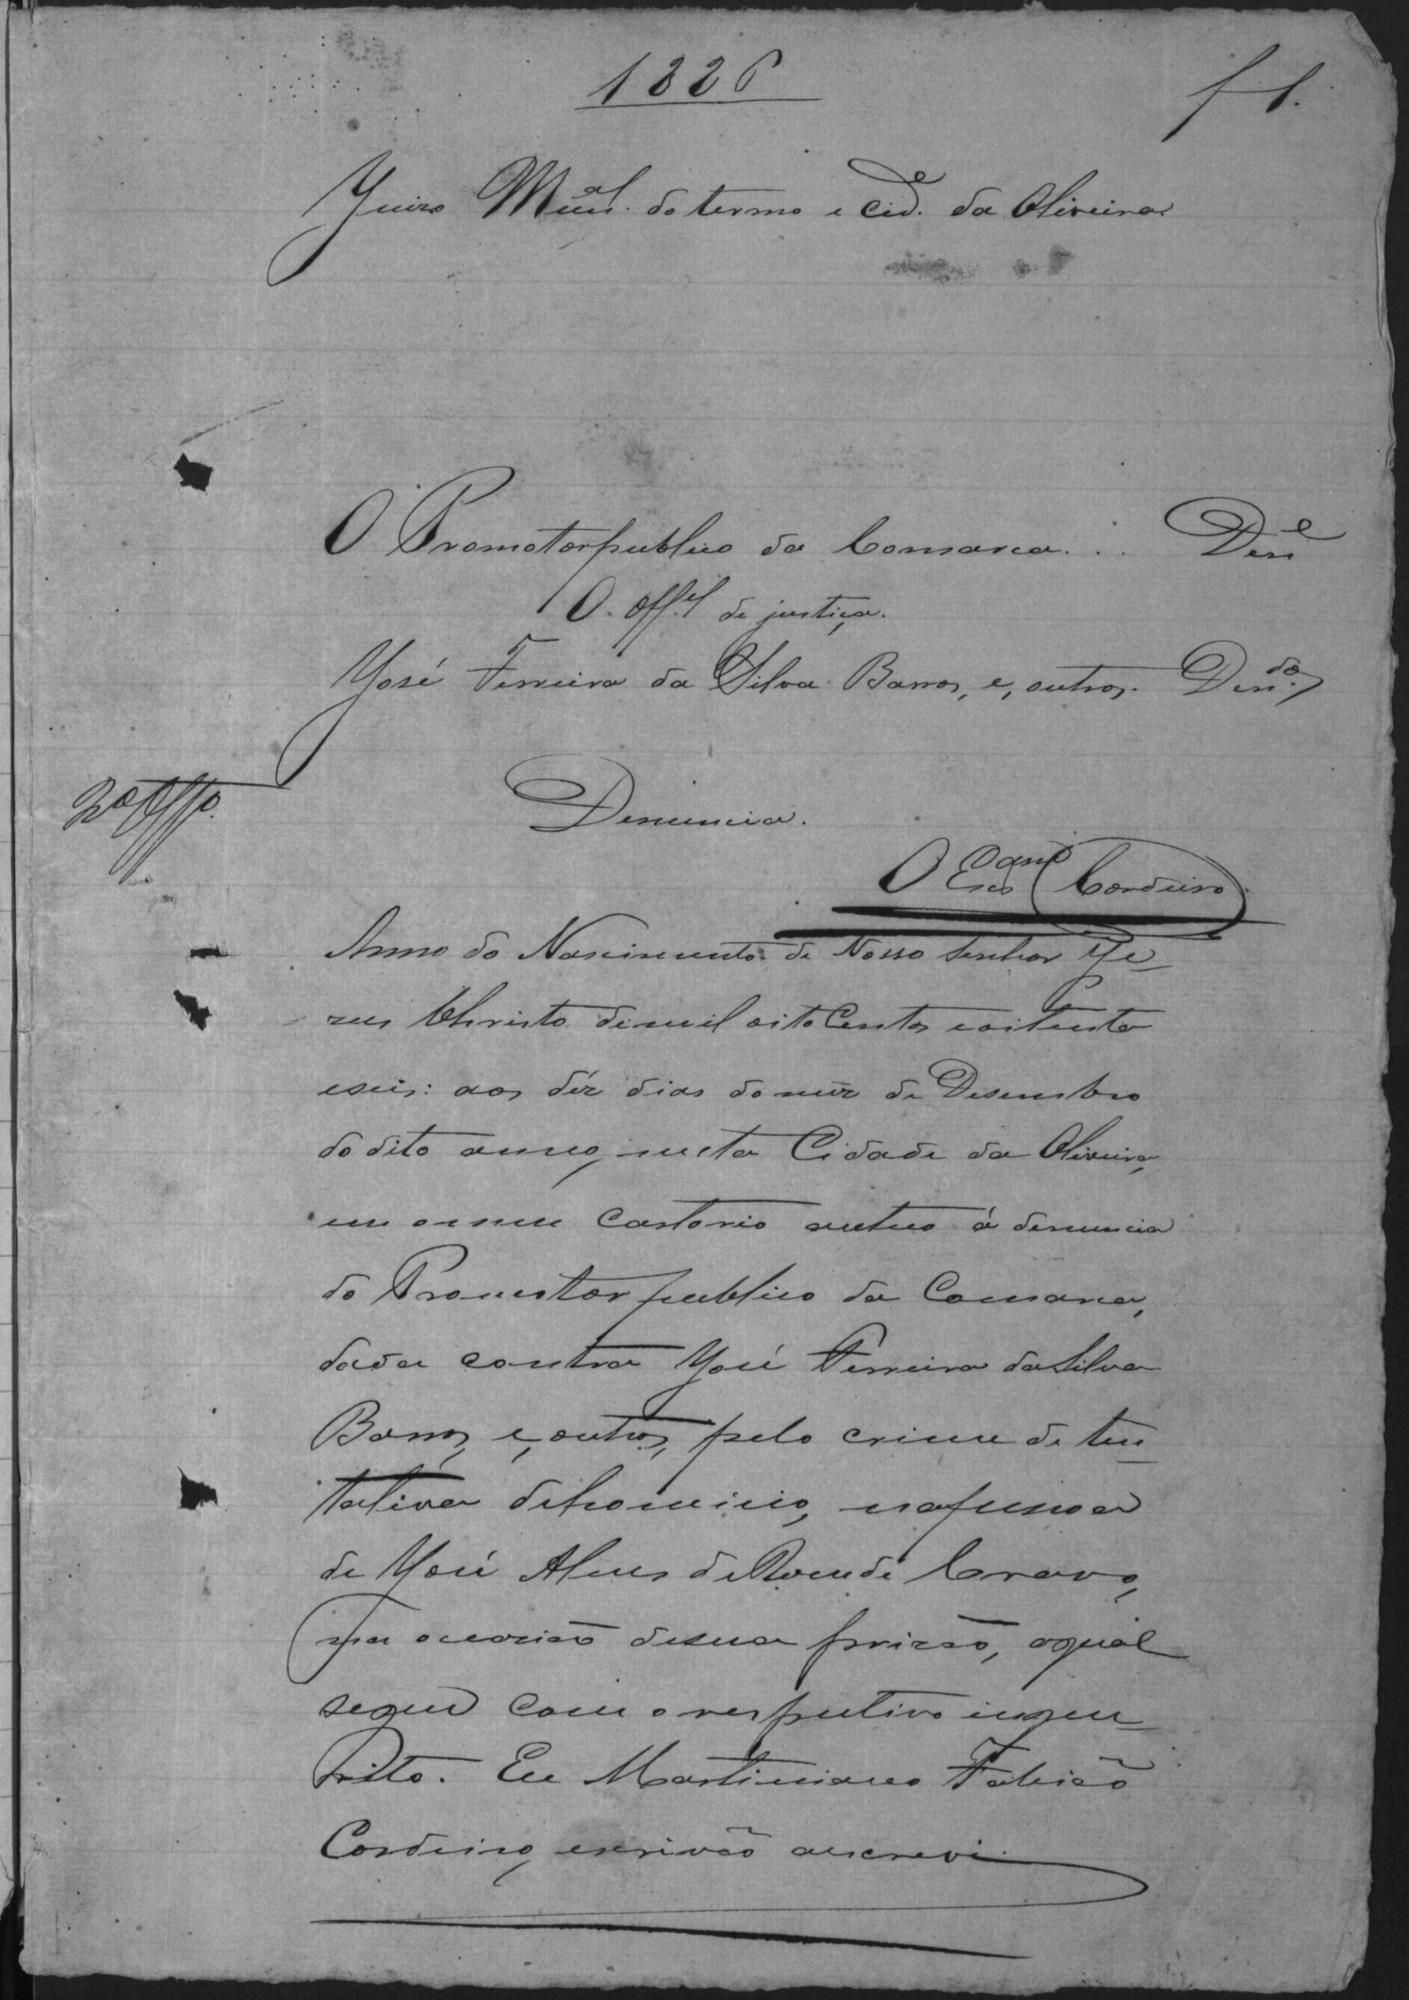 1886
f 1.
Juizo Mun.al do termo e Cid.e da Oliveira
O Promotor publico da Comarca... Den.e
O. Off.el de justiça.
José Ferreira da Silva Barros, e, outros. Den.dos
2º Offº.
Denuncia.
O Escam Cordeiro.
Anno do Nascimento de Nosso Senhor Je-
zus Christo de mil oito Centos e oitenta
e seis: aos déz dias do mez de Desembro
do dito anno, nesta Cidade da Oliveira,
em o meu Cartorio autuo á denuncia
do Promotor publico da Comarca,
dada contra José Ferreira da Silva
Barros, e, outros, pelo crime de ten-
tativa de homicio, na pessoa
de José Alves de Resende Cravo,
na occasião de sua prizão, a qual
segue com o respectivo inque-
rito. Eu Martiniano Fabião
Cordeiro, escrivão a escrevi.